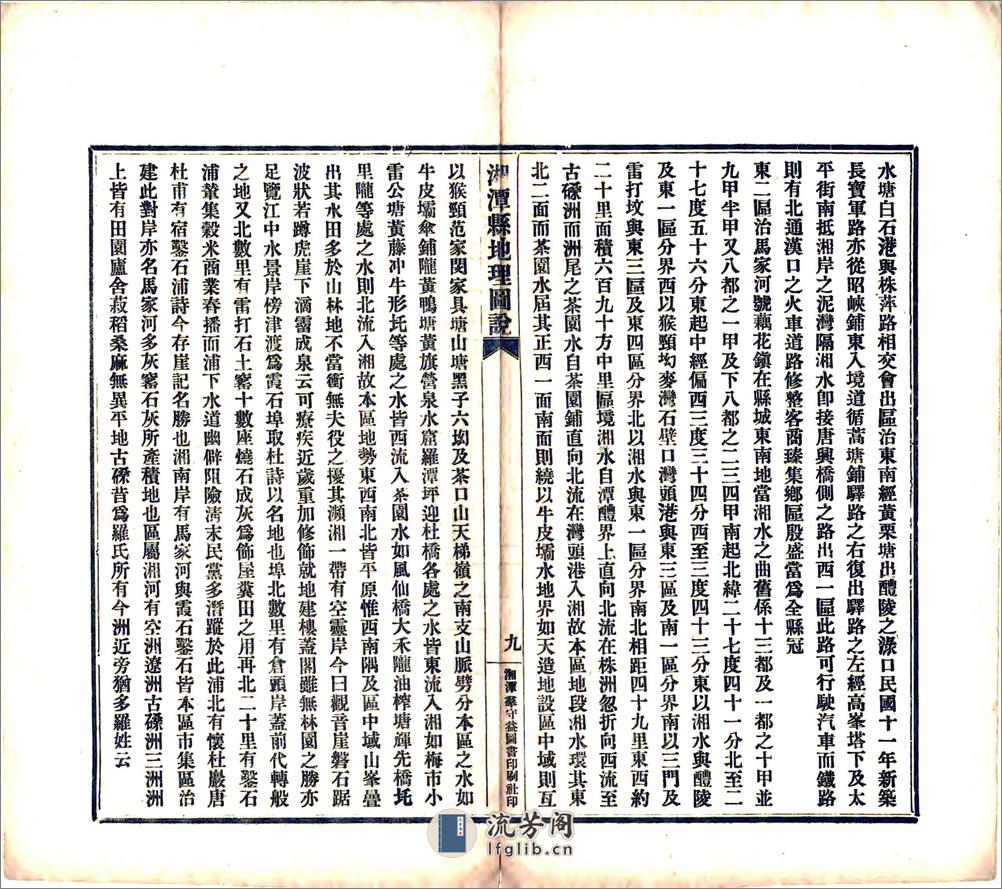 水塘白石港與株萍路相交會出區治東南經黃栗塘出醴陵之淥口民國十一年新築
長寶軍路亦從昭峽鋪東入境道循蒿塘鋪驛路之右復出驛路之左經高峯塔下及太
平街南抵湘岸之泥灣隔湘水卽接唐興橋側之路出西一區此路可行駛汽車而鐵路
則有北通漢口之火車道路修整客商臻集鄉區殷盛當爲全縣冠
東二區治馬家河號藕花鎮在縣城東南地當湘水之曲舊係十三都及一都之十甲並
九甲半甲又八都之一甲及下八都之二三四甲南起北緯二十七度四十一分北至二
十七度五十六分東起中經偏西三度三十四分西至三度四十三分東以湘水與醴陵
及東一區分界西以猴頸坳麥灣石壁口灣頭港與東三區及南一區分界南以三門及
雷打坟與東三區及東四區分界北以湘水與東一區分界南北相距四十九里東西約
二十里面積六百九十方中里區境湘水自潭醴界上直向北流在株洲忽折向西流至
古磉洲而洲尾之茶園水自茶園鋪直向北流在灣頭港入湘故本區地段湘水界其東
北二面而茶園水屆其正西一面南面則繞以牛皮壩水地界如天造地設區中域則互
湘潭縣地理圖說
九
湘潭蔡守益圖書印刷社印
以猴頸范家閔家具塘山塘黑子六坳及茶口山天梯嶺之南支山脈劈分本區之水如
牛皮壩傘鋪隴黃鴨塘黃旗營泉水窟羅潭坪迎杜橋各處之水皆東流入湘如梅市小
雷公塘黃藤冲牛形圫等處之水皆西流入茶園水如風仙橋大禾隴油榨塘輝先橋圫
里隴等處之水則北流入湘故本區地勢東西南北皆平原惟西南隅及區中域山峯疊
出其水田多於山林地不當衝無夫役之擾其瀕湘一帶有空靈岸今曰觀音崖磐石踞
波狀若蹲虎崖下滴靈成泉云可療疾近歲重加修飾就地建樓蓋閣雖無林園之勝亦
足覽江中水景岸傍津渡爲霞石埠取杜詩以名地也埠北數里有倉頭岸蓋前代轉般
之地又北數里有雷打石土窰十數座燒石成灰爲飾屋糞田之用再北二十里有鑿石
浦輋集穀米商業春播而浦下水道幽僻阻險清末民黨多潛蹤於此浦北有懷杜巖唐
杜甫有宿鑿石浦詩今存崖記名勝也湘南岸有馬家河與霞石鑿石皆本區市集區治
建此對岸亦名馬家河多灰窰石灰所產積地也區屬湘河有空洲遼洲古磉洲三洲洲
上皆有田園廬舍菽稻桑麻無異平地古磉昔爲羅氏所有今洲近旁猶多羅姓云
流芳阁
lfglib.cn